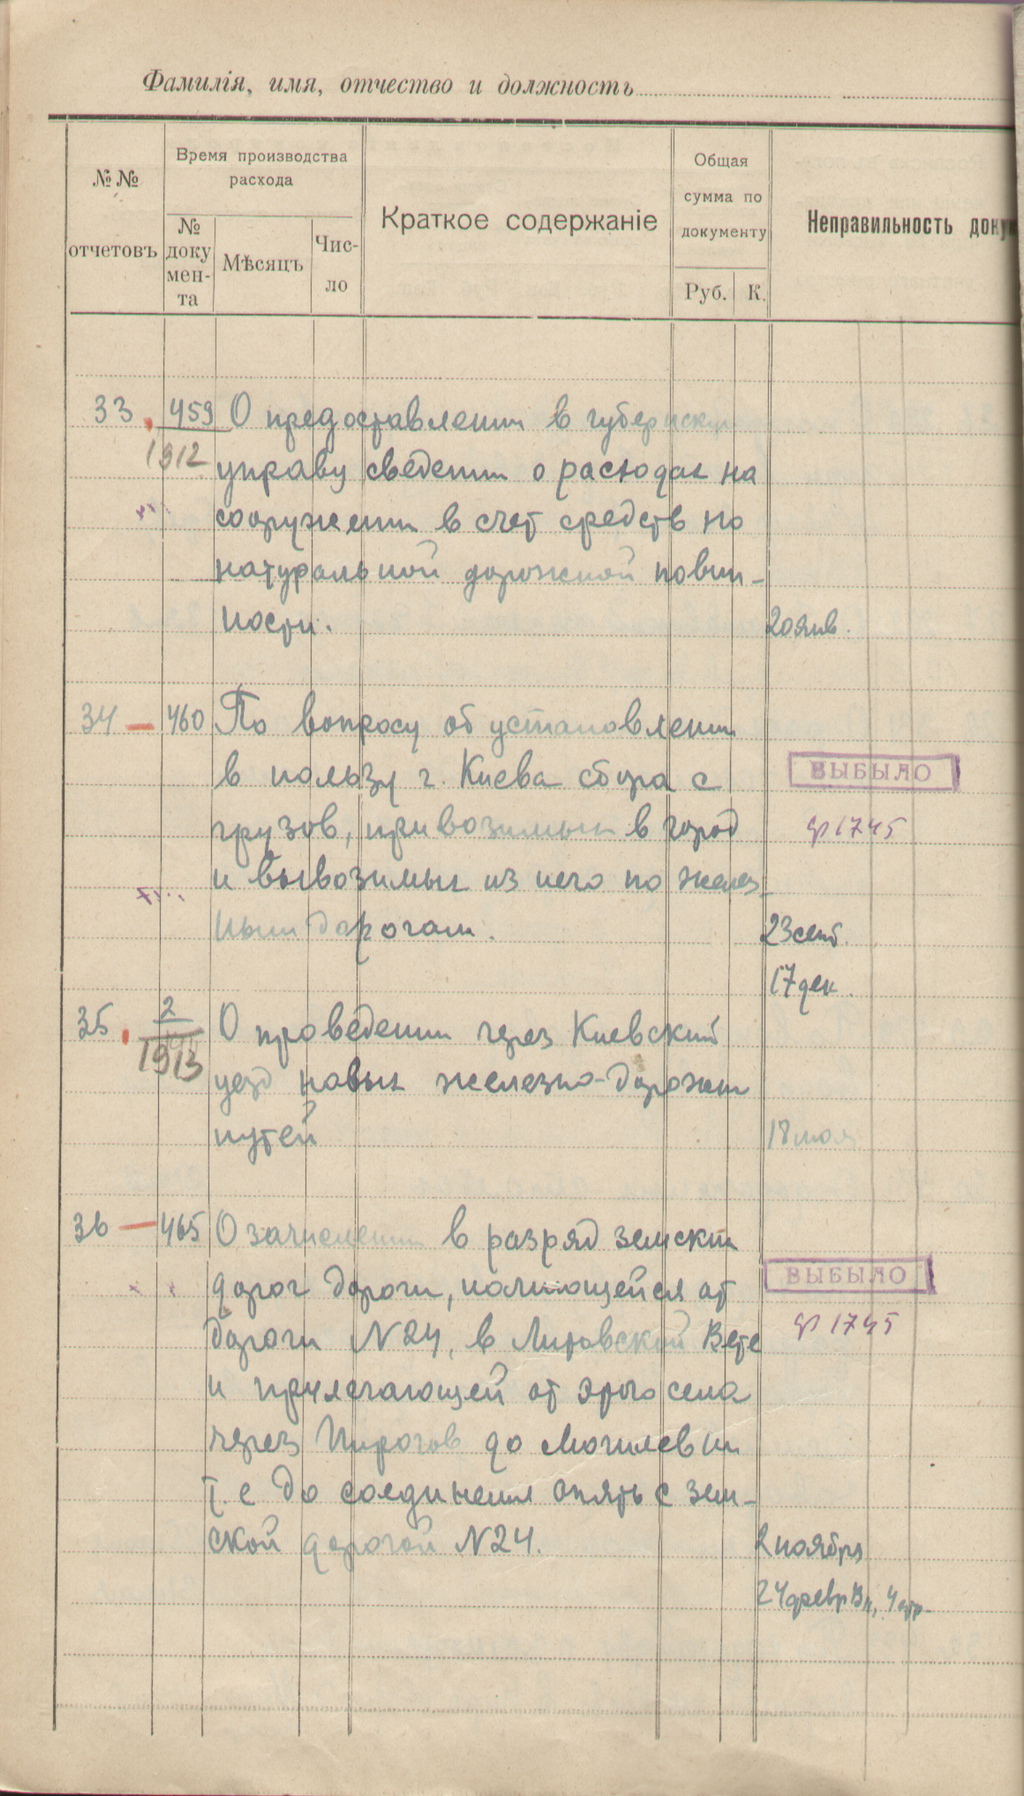 Фамилія, имя, отчество и должность
№№ отчетовъ
Время производства расхода
№ доку мен- та
Мѣсяцъ
Чис- ло
Краткое содержаніе
Общая сумма по документу
Руб. К.
Неправильность доку
33. 459 О предоставлении в губернскую
1912 управу сведении о расходах на
сооружении в счет средств по
натуральной дорожной повин-
ности.
20 янв.
34 — 460 По вопросу об установлении
в пользу г. Киева сбора с
ВЫБЫЛО
грузов, привозимых в город
ф 1745
и вывозимых из него по желез
ным дорогам.
23 сент.
17 дек.
35. 2 О проведении через Киевский
1913
уезд новых железно-дорожн
путей
18 мая
36 — 465 О зачислении в разряд земских
дорог дороги, начинающейся от
ВЫБЫЛО
дороги N 24, в Литовской Вете
ф 1745
и прилегающей от этого села
через Пирогов до Могилевки
т. е до соединения опять с зем-
ской дорогой N 24.
2 ноября
24 февр